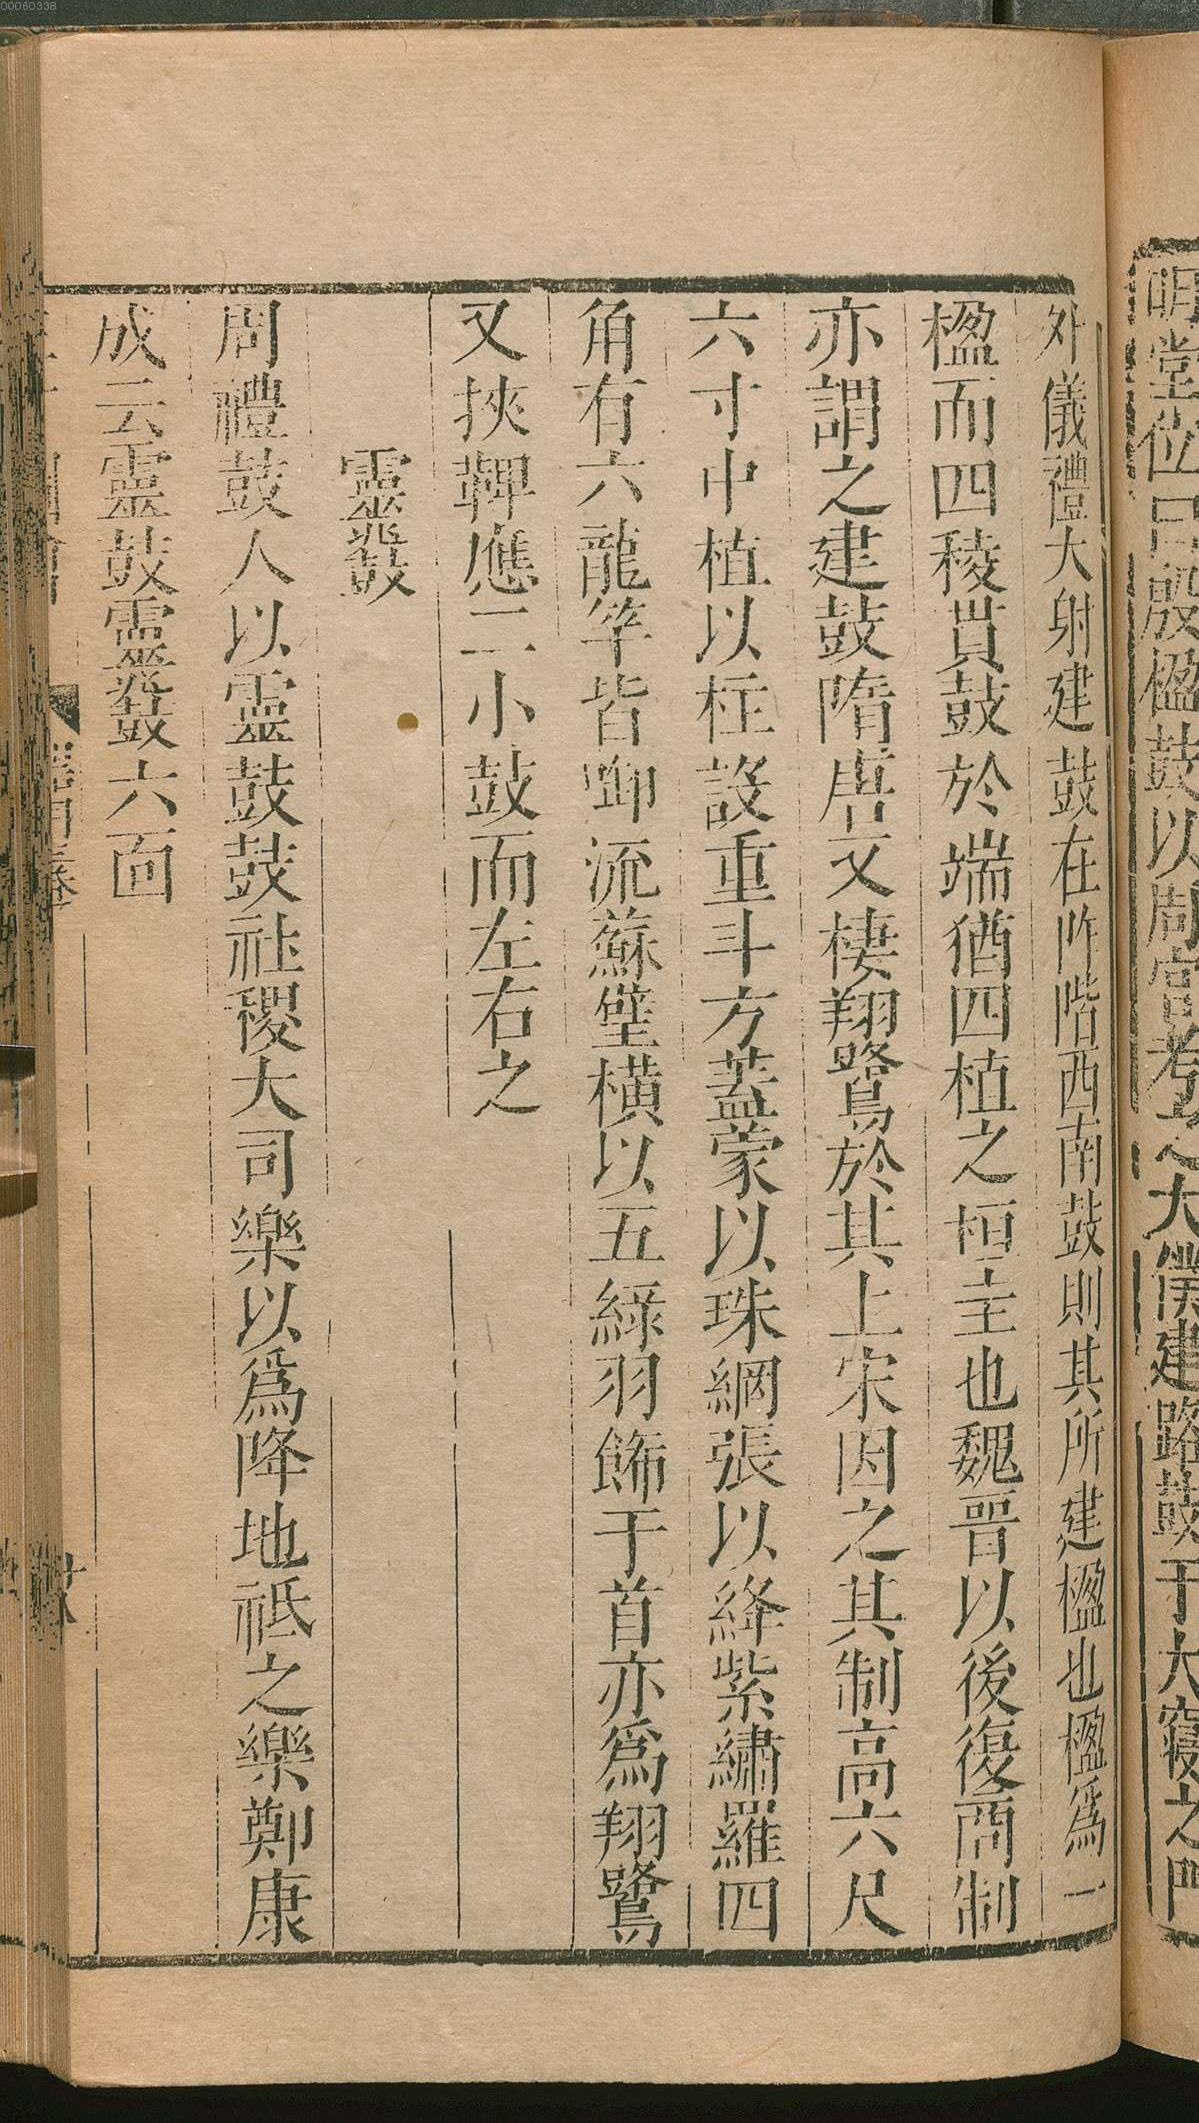 明堂位曰殷楹鼓以周官考之大僕建路鼓于大寢之門
外儀禮大射建鼓在阼階西南鼓則其所建楹也楹爲一
楹而四稜貫鼓於端猶四植之桓圭也魏晉以後復商制
亦謂之建鼓隋唐又棲翔鷺於其上宋因之其制高六尺
六寸中植以柱設重斗方蓋蒙以珠網張以絳紫繡羅四
角有六龍竿皆㖡流蘇壁橫以五綵羽飾于首亦爲翔鷺
又挾鞞應二小鼓而左右之
靈鼗
周禮鼓人以靈鼓鼓社稷大司樂以爲降地祗之樂鄭康
成云靈鼓靈鼗六面
00060338